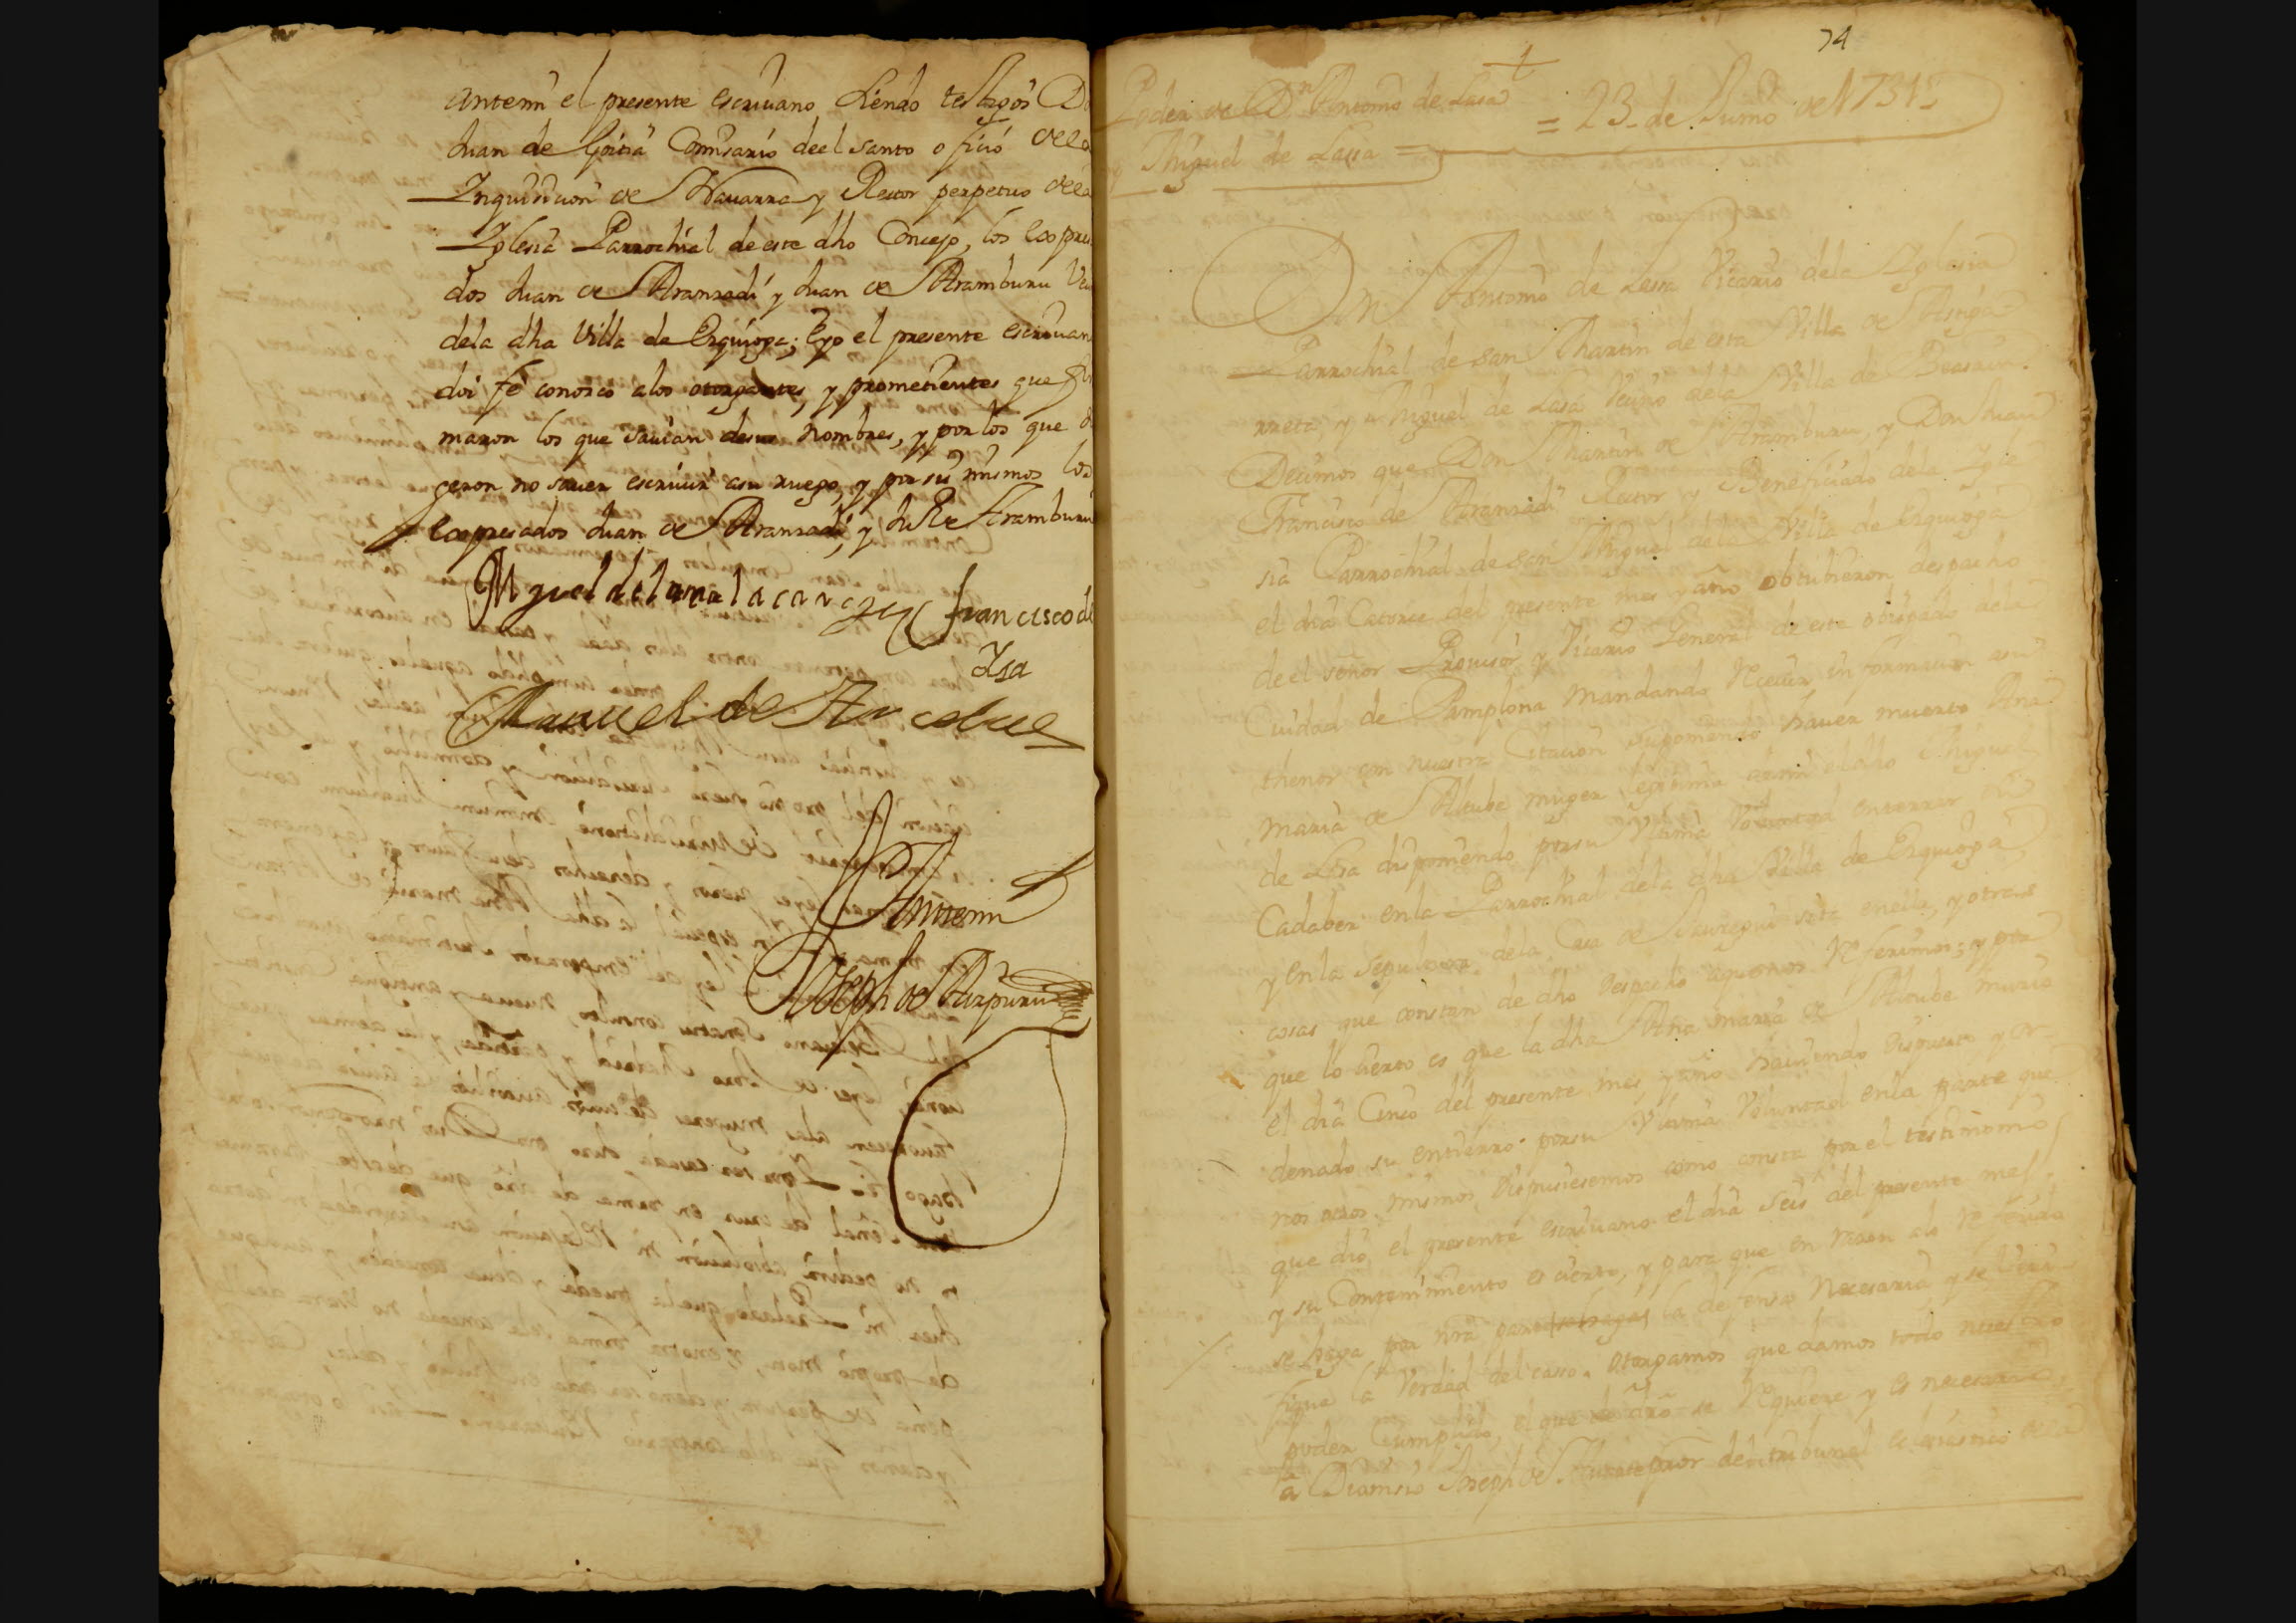 antemi el presente escriuano siendo testigos D
Juan de Goitia Comisario de el santo oficio dela
Inquisicion de Nauarra y Rector perpetuo dela
Iglesia Parrochial de este dho Concejo, los expres
dos Juan de Aranzadi y Juan de Aramburu Ve
dela dha Villa de Ezquioga; E yo el presente escriuan
doi fe conozco alos otorgantes, y prometientes que fir
maron los que sauian desus nombres, y por los que di
geron no sauer escriuir asu ruego, y por si mismos los
expresados Juan de Aranzadi, y Ju de Aramburu
Miguel de
francisco de
Isa
Manuel de
Antemi
Joseph de Aizpuru
74
Poder de Dn Antonio de Lasa
y Miguel de Lassa = = 23 de Junio de 1731
Dn Antonio de Lassa Vicario dela Iglesia
Parrochial de san Martin de esta Villa de Astiga
rreta y Miguel de Lasa Vecino dela Villa de Beasain.
Decimos que Don Martin de Aramburu, y Don Juan
Francisco de Aranzadi Rector y Beneficiado dela Igle
sia Parrochial de san Miguel dela Villa de Ezquioga
el dia Catorce del presente mes y año obtubieron despacho
de el señor Prouisor y Vicario General de este obispado dela
Ciudad de Pamplona mandando Reciuir informacion asu
thenor con nuestra Citacion suponiendo hauer muerto Ana
maria de Altube muger legitima demi eldho Miguel
de Lasa disponiendo por su Vltima Voluntad enterrar su
Cadaber enla Parrochial dela dha Villa de Ezquioga
y enla sepultura dela Casa de Jauregui sita enella, y otras
cosas que constan de dho despacho aquenos Referimos; y por
que lo cierto es que la dha Ana maria de Altube murio
el dia Cinco del presente mes y año hauiendo dispuesto y or-
denado su entierro por su Vltima Voluntad enla parte que
nos otros mismos dispusiesemos como consta por el testimonio
que dio el presente escriuano el dia seis del presente mes
y su Contenimiento es cierto, y para que en razon alo Referido
se haga por nra parte la defensa Necesaria y se
fique la Verdad del caso. Otorgamos que damos todo nuestro
poder Cumplido, el que de dro se Requiere y es necesario
a Dionisio Joseph de procor del tribunal eclesiastico dela